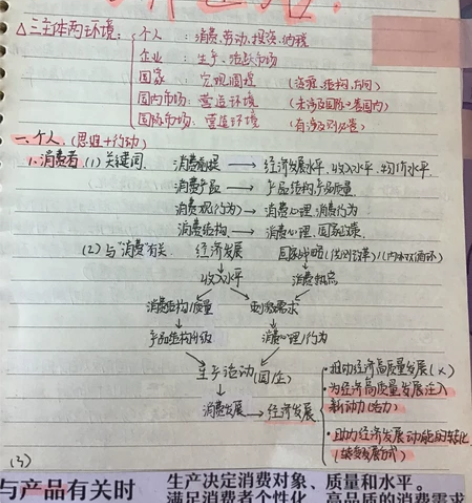 △三主体两环境: 个人:消费,劳动,投资,纳税
企业:生产、
国家:宏观调控
国内市场:营造环境
国际市场:营造环境 (有涉及则必答)
一、个人.(思维+行动)
1.消费者.(1)关键词. → 经济发展水平,收入水平.物价水平
→ 产品结构,产品质量
消费观(行为) → 消费心理,消费行为
消费结构 → 消费心理、国家政策.
(2)与"消费"有关. 经济发展 国家战略
收入水平
消费结构/质量 刺激需求
产品结构升级 消费心理/行为
生产活动(国/企)
消费发展 → 经济发展
·推动经济高质量发展(×)
·为经济高质量发展注入
新动力(活力)
·助力经济发展动能的转化
(转变发展方式)
(3)
与产品有关时 生产决定消费对象、质量和水平。
满足消费者个性化、高品质的消费需求